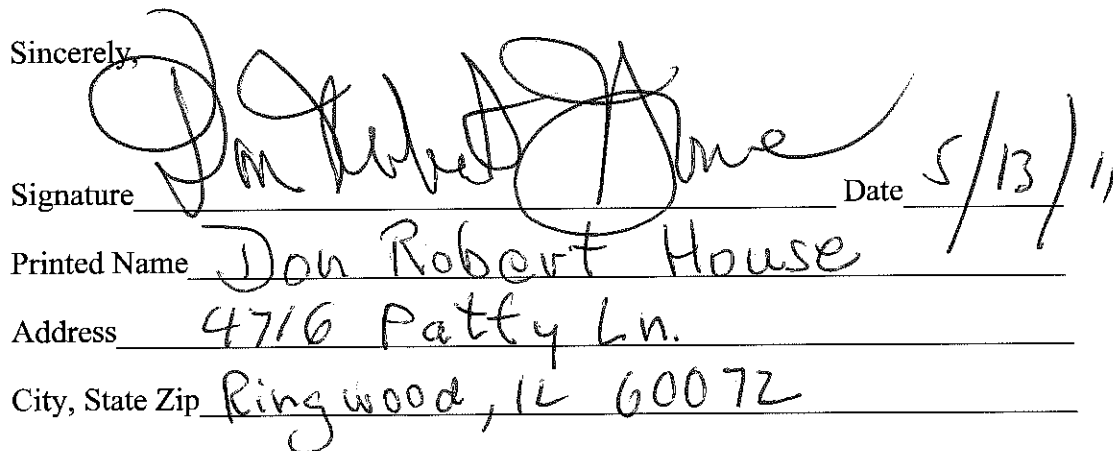 Sincerely,
Signature Don Robert House Date 5/13/11
Printed Name Don Robert House
Address 4716 Patty Ln.
City, State Zip Ringwood, IL 60072